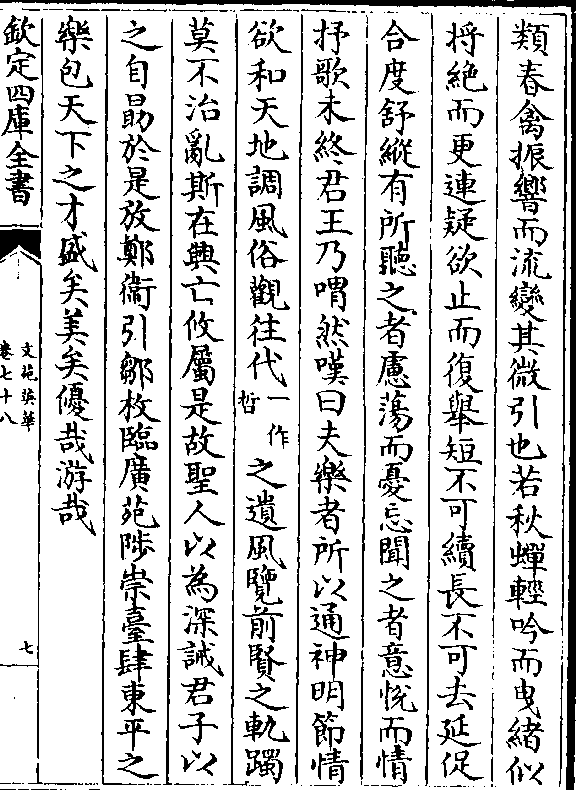 類春禽振響而流變其微引也若秋蟬輕吟而曳緒似
将絶而更連疑欲止而復舉短不可續長不可去延促
合度舒縱有所聽之者慮蕩而憂忘聞之者意悅而情
抒歌未終君王乃喟然嘆曰夫樂者所以通神明節情
欲和天地調風俗觀往代一作哲之遺風覽前賢之軌躅
莫不治亂斯在興亡攸屬是故聖人以為深誡君子以
之自勗於是放鄭衞引鄒枚臨廣苑陟崇臺肆東平之
樂包天下之才盛矣美矣優哉游哉
欽定四庫全書
文苑英華
卷七十八
七